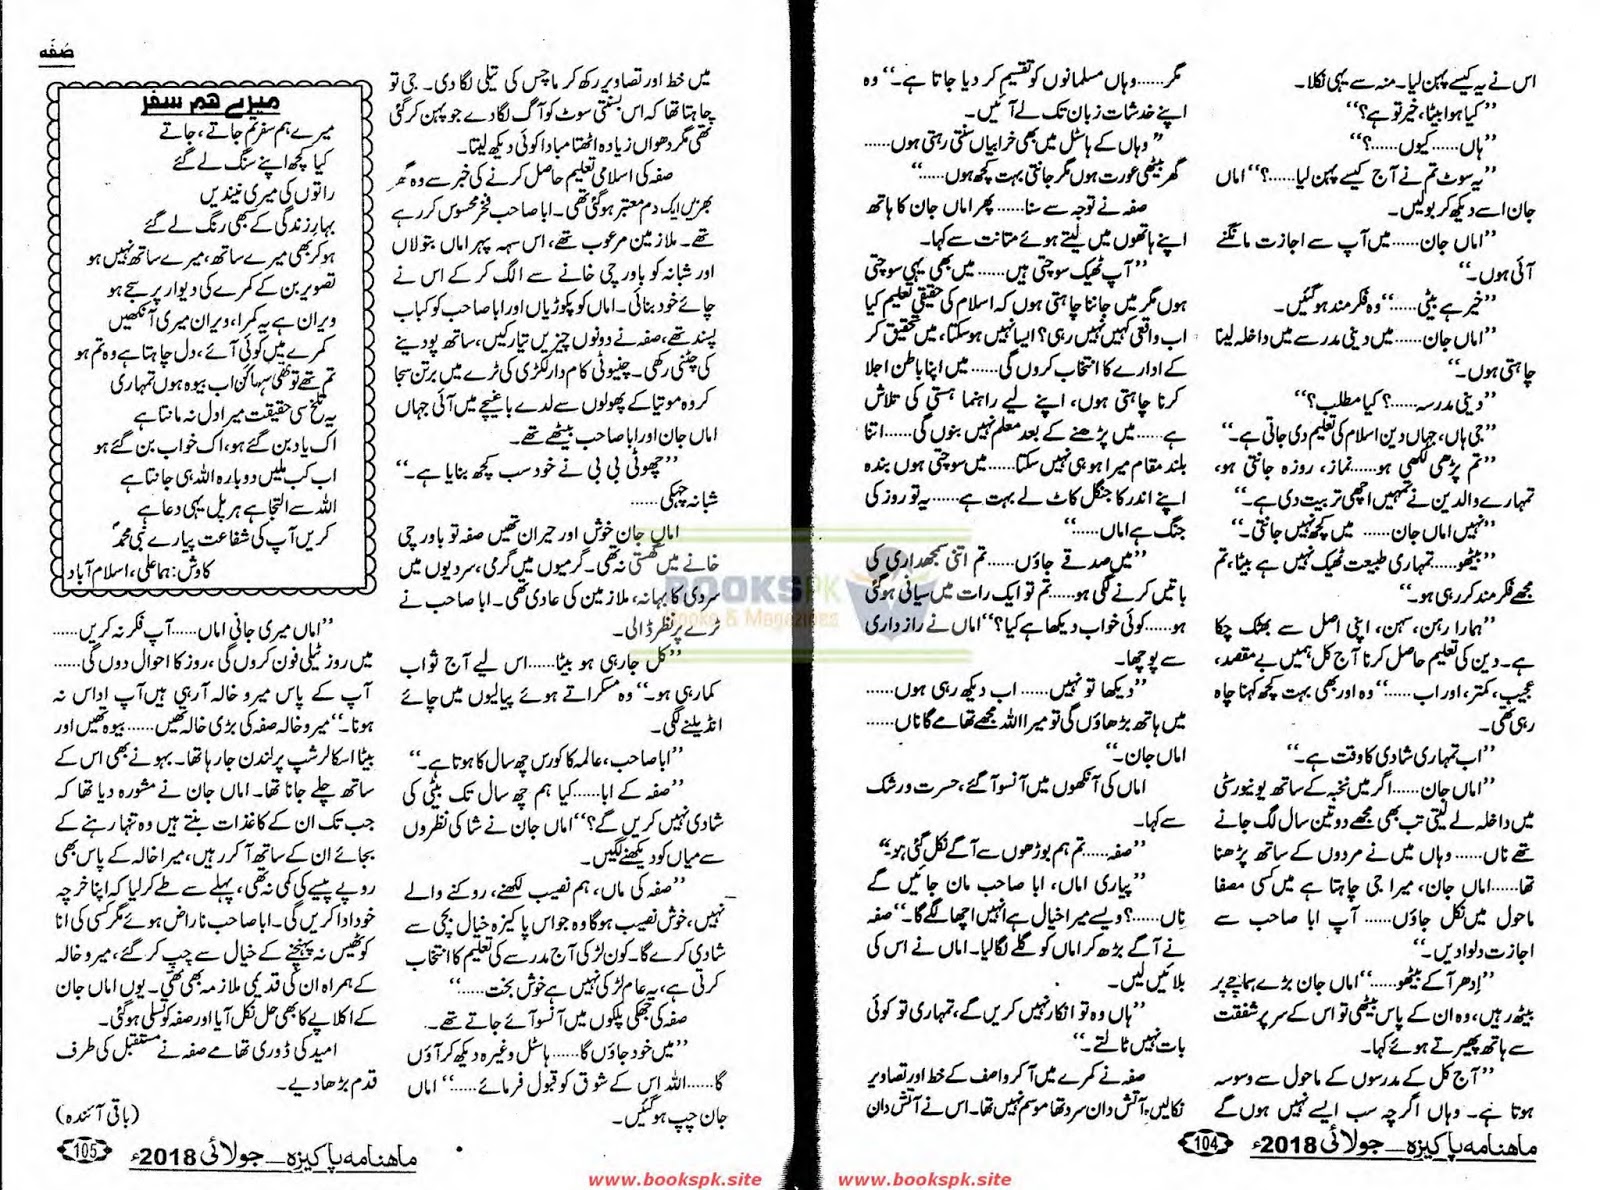 اس نے یہ کیسے پہن لیا۔ منہ سے یہی نکلا۔
’’کیا ہوا بیٹا، خیر تو ہے؟‘‘
’’ہاں...... کیوں......؟‘‘
’’یہ سوٹ تم نے آج کیسے پہن لیا......؟‘‘ اماں
جان اسے دیکھ کر بولیں۔
’’اماں جان...... میں آپ سے اجازت مانگنے
آئی ہوں۔‘‘
’’خیر ہے بیٹی......‘‘ وہ فکر مند ہو گئیں۔
’’اماں جان...... میں دینی مدرسے میں داخلہ لینا
چاہتی ہوں۔‘‘
’’دینی مدرسہ......؟ کیا مطلب؟‘‘
’’جی ہاں، جہاں دین اسلام کی تعلیم دی جاتی ہے۔‘‘
’’تم پڑھی لکھی ہو...... نماز، روزہ جانتی ہو،
تمہارے والدین نے تمہیں اچھی تربیت دی ہے۔‘‘
’’نہیں اماں جان...... میں کچھ نہیں جانتی۔‘‘
’’بیٹھو...... تمہاری طبیعت ٹھیک نہیں ہے بیٹا، تم
مجھے فکر مند کر رہی ہو۔‘‘
’’ہمارا رہن، سہن، اپنی اصل سے بھٹک چکا
ہے۔ دین کی تعلیم حاصل کرنا آج کل ہمیں بے مقصد،
عجیب، کمتر، اور اب......‘‘ وہ اور بھی بہت کچھ کہنا چاہ
رہی تھی۔
’’اب تمہاری شادی کا وقت ہے۔‘‘
’’اماں جان...... اگر میں نخبہ کے ساتھ یونیورسٹی
میں داخلہ لے لیتی تب بھی مجھے دو تین سال لگ جانے
تھے ناں...... وہاں میں نے مردوں کے ساتھ پڑھنا
تھا...... اماں جان، میرا جی چاہتا ہے میں کسی مصفا
ماحول میں نکل جاؤں...... آپ ابا صاحب سے
اجازت دلوا دیں۔‘‘
’’اِدھر آ کے بیٹھو......‘‘ اماں جان بڑے ہماچے پر
بیٹھ رہیں، وہ ان کے پاس بیٹھی تو اس کے سر پر شفقت
سے ہاتھ پھیرتے ہوئے کہا۔
’’آج کل کے مدرسوں کے ماحول سے وسوسہ
ہوتا ہے۔ وہاں اگرچہ سب ایسے نہیں ہوں گے
مگر...... وہاں مسلمانوں کو تقسیم کر دیا جاتا ہے۔‘‘ وہ
اپنے خدشات زبان تک لے آئیں۔
’’وہاں کے ہاسٹل میں بھی خرابیاں سنتی رہتی ہوں......
گھر بیٹھی عورت ہوں مگر جانتی بہت کچھ ہوں......‘‘
صفہ نے توجہ سے سنا...... پھر اماں جان کا ہاتھ
اپنے ہاتھوں میں لیتے ہوئے متانت سے کہا۔
’’آپ ٹھیک سوچتی ہیں...... میں بھی یہی سوچتی
ہوں مگر میں جاننا چاہتی ہوں کہ اسلام کی حقیقی تعلیم کیا
اب واقعی کہیں نہیں رہی؟ ایسا نہیں ہو سکتا، میں تحقیق کر
کے ادارے کا انتخاب کروں گی...... میں اپنا باطن اجلا
کرنا چاہتی ہوں، اپنے لیے راہنما ہستی کی تلاش
ہے...... میں پڑھنے کے بعد معلم نہیں بنوں گی...... اتنا
بلند مقام میرا ہو ہی نہیں سکتا...... میں سوچتی ہوں بندہ
اپنے اندر کا جنگل کاٹ لے بہت ہے...... یہ تو روز کی
جنگ ہے اماں......‘‘
’’میں صدقے جاؤں...... تم اتنی سمجھداری کی
باتیں کرنے لگی ہو...... تم تو ایک رات میں سیانی ہو گئی
ہو...... کوئی خواب دیکھا ہے کیا؟‘‘ اماں نے راز داری
سے پوچھا۔
’’دیکھا تو نہیں...... اب دیکھ رہی ہوں......
میں ہاتھ بڑھاؤں گی تو میرا اللہ مجھے تھامے گا ناں......
اماں جان۔‘‘
اماں کی آنکھوں میں آنسو آ گئے، حسرت و رشک
سے کہا۔
’’صفہ...... تم ہم بوڑھوں سے آگے نکل گئی ہو۔‘‘
’’پیاری اماں، ابا صاحب مان جائیں گے
ناں......؟ ویسے میرا خیال ہے انہیں اچھا لگے گا۔‘‘ صفہ
نے آگے بڑھ کر اماں کو گلے لگا لیا۔ اماں نے اس کی
بلائیں لیں۔
’’ہاں وہ تو انکار نہیں کریں گے، تمہاری تو کوئی
بات نہیں ٹالتے۔‘‘
صفہ نے کمرے میں آ کر واصف کے خط اور تصاویر
نکالیں، آتش دان سرد تھا موسم نہیں تھا۔ اس نے آتش دان
ماہنامہ پاکیزہ۔ جولائی 2018ء
104
www.bookspk.site
صُفّہ
میں خط اور تصاویر رکھ کر ماچس کی تیلی لگا دی۔ جی تو
چاہتا تھا کہ اس بسنتی سوٹ کو آگ لگا دے جو پہن کر گئی
تھی مگر دھواں زیادہ اٹھتا مبادا کوئی دیکھ لیتا۔
صفہ کی اسلامی تعلیم حاصل کرنے کی خبر سے وہ گھر
بھر میں ایک دم معتبر ہو گئی تھی۔ ابا صاحب فخر محسوس کر رہے
تھے۔ ملازمین مرعوب تھے، اس سہہ پہر اماں بتولاں
اور شبانہ کو باورچی خانے سے الگ کر کے اس نے
چائے خود بنائی۔ اماں کو پکوڑیاں اور ابا صاحب کو کباب
پسند تھے، صفہ نے دونوں چیزیں تیار کیں، ساتھ پودینے
کی چٹنی رکھی۔ چنیوٹی کام دار لکڑی کی ٹرے میں برتن سجا
کر وہ موتیا کے پھولوں سے لدے باغیچے میں آئی جہاں
اماں جان اور ابا صاحب بیٹھے تھے۔
’’چھوٹی بی بی نے خود سب کچھ بنایا ہے۔‘‘
شبانہ چہکی......
اماں جان خوش اور حیران تھیں صفہ تو باورچی
خانے میں گھستی نہ تھی۔ گرمیوں میں گرمی، سردیوں میں
سردی کا بہانہ، ملازمین کی عادی تھی۔ ابا صاحب نے
ٹرے پر نظر ڈالی۔
’’کل جا رہی ہو بیٹا...... اس لیے آج ثواب
کما رہی ہو۔‘‘ وہ مسکراتے ہوئے پیالیوں میں چائے
انڈیلنے لگی۔
’’ابا صاحب، عالمہ کا کورس چھ سال کا ہوتا ہے۔‘‘
’’صفہ کے ابا...... کیا ہم چھ سال تک بیٹی کی
شادی نہیں کریں گے؟‘‘ اماں جان نے شاکی نظروں
سے میاں کو دیکھنے لگیں۔
’’صفہ کی ماں، ہم نصیب لکھنے، روکنے والے
نہیں، خوش نصیب ہوگا وہ جو اس پاکیزہ خیال بچی سے
شادی کرے گا۔ کون لڑکی آج مدرسے کی تعلیم کا انتخاب
کرتی ہے، یہ عام لڑکی نہیں ہے خوش بخت......‘‘
صفہ کی جھکی پلکوں میں آنسو آئے جاتے تھے۔
’’میں خود جاؤں گا...... ہاسٹل وغیرہ دیکھ کر آؤں
گا...... اللہ اس کے شوق کو قبول فرمائے......‘‘ اماں
جان چپ ہو گئیں۔
میرے ہم سفر
میرے ہم سفر تم جاتے، جاتے
کیا کچھ اپنے سنگ لے گئے
راتوں کی میری نیندیں
بہارِ زندگی کے بھی رنگ لے گئے
ہو کر بھی میرے ساتھ، میرے ساتھ نہیں ہو
تصویر بن کے کمرے کی دیوار پر سجے ہو
ویران ہے یہ کمرا، ویران میری آنکھیں
کمرے میں کوئی آئے، دل چاہتا ہے وہ تم ہو
تم تھے تو تھی سہاگن اب بیوہ ہوں تمہاری
یہ تلخ سی حقیقت میرا دل نہ مانتا ہے
اک یاد بن گئے ہو، اک خواب بن گئے ہو
اب کب ملیں دوبارہ اللہ ہی جانتا ہے
اللہ سے التجا ہے ہر پل یہی دعا ہے
کریں آپ کی شفاعت پیارے نبی محمدؐ
کاوش: ہما علی، اسلام آباد
’’اماں میری جانی اماں...... آپ فکر نہ کریں......
میں روز ٹیلی فون کروں گی، روز کا احوال دوں گی......
آپ کے پاس میرو خالہ آ رہی ہیں آپ اداس نہ
ہونا۔‘‘ میرو خالہ صفہ کی بڑی خالہ تھیں...... بیوہ تھیں اور
بیٹا اسکالرشپ پر لندن جا رہا تھا۔ بہو نے بھی اس کے
ساتھ چلے جانا تھا۔ اماں جان نے مشورہ دیا تھا کہ
جب تک ان کے کاغذات بنتے ہیں وہ تنہا رہنے کے
بجائے ان کے ساتھ آ کر رہیں، میرا خالہ کے پاس بھی
روپے پیسے کی کمی نہ تھی، پہلے سے طے کر لیا کہ اپنا خرچہ
خود ادا کریں گی۔ ابا صاحب ناراض ہوئے مگر کسی کی انا
کو ٹھیس نہ پہنچنے کے خیال سے چپ کر گئے، میرو خالہ
کے ہمراہ ان کی قدیمی ملازمہ بھی تھی۔ یوں اماں جان
کے اکلاپے کا بھی حل نکل آیا اور صفہ کو تسلی ہو گئی۔
امید کی ڈوری تھامے صفہ نے مستقبل کی طرف
قدم بڑھا دیے۔
(باقی آئندہ)
ماہنامہ پاکیزہ۔ جولائی 2018ء
105
www.bookspk.site
BOOKSPK
Books & Magazines